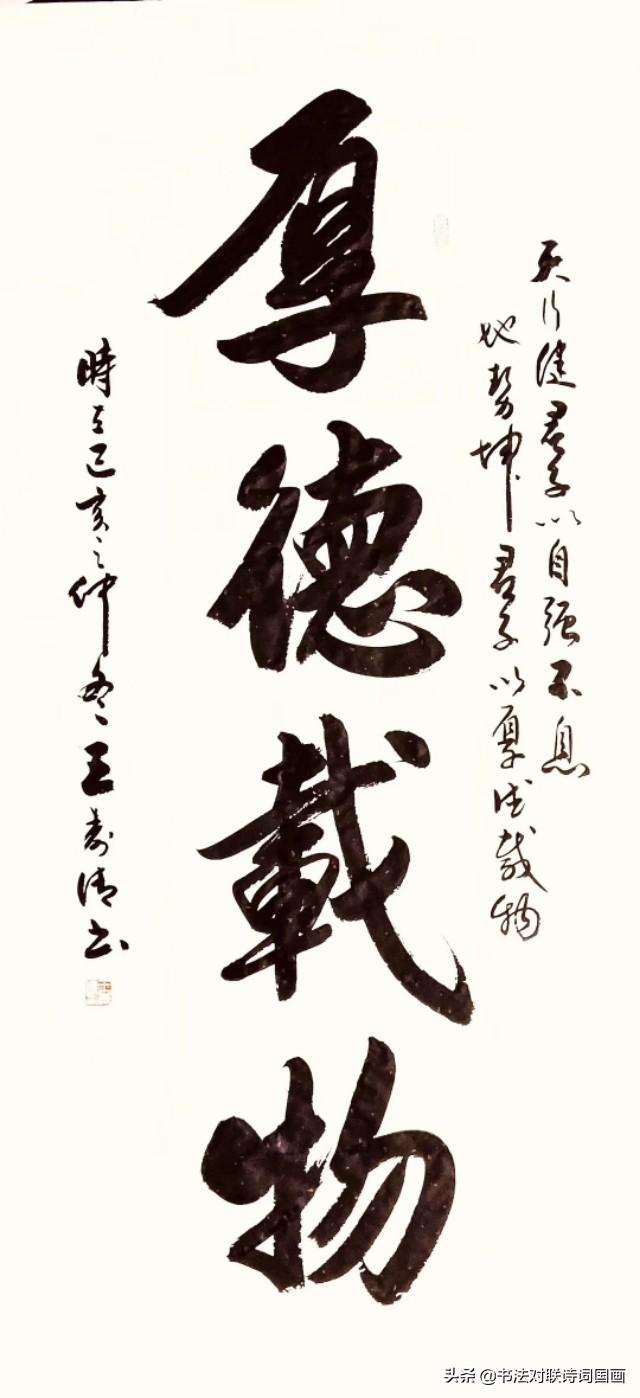 天行健君子以自强不息
地势坤君子以厚德载物
厚德載物
時在己亥之仲冬王壽清书
头条 @书法对联诗词国画